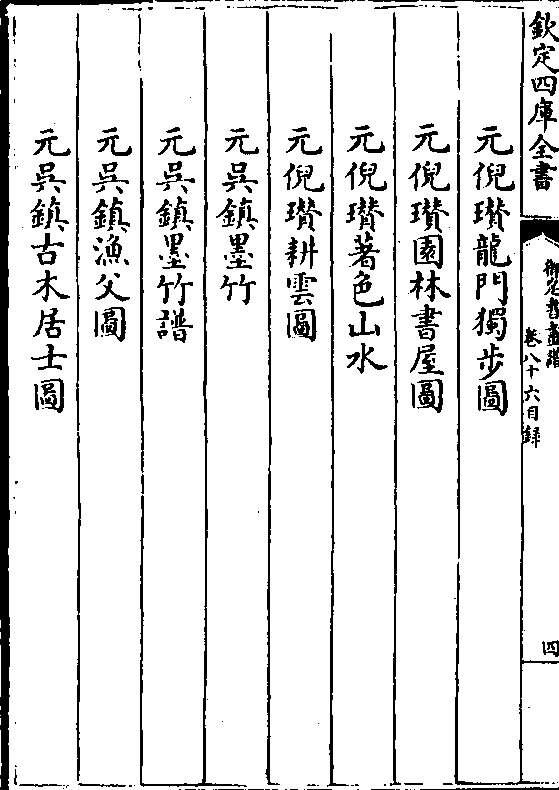 欽定四庫全書
御定書畫譜
卷八十六目録
四
元倪瓚龍門獨步圖
元倪瓚園林書屋圖
元倪瓚著色山水
元倪瓚耕雲圖
元吳鎮墨竹
元吳鎮墨竹譜
元吳鎮漁父圖
元吳鎮古木居士圖